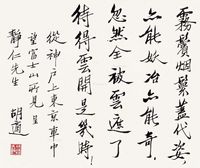 霧鬢烟鬟蓋代姿，
亦能妖冶亦能奇。
忽然全被雲遮了，
待得雲開是幾時！
從神戶上東京車中
望富士山所見呈
靜仁先生 胡適